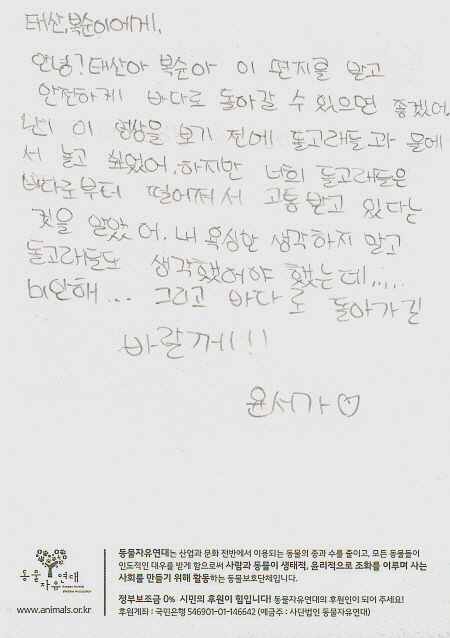 태산,복순이에게,
안녕? 태산아 복순아 이 편지를 받고
안전하게 바다로 돌아갈 수 있으면 좋겠어.
난 이 영상을 보기 전에 돌고래들과 물에
서 놀고 싶었어. 하지만 너희 돌고래들은
바다로부터 떨어져서 고통받고 있다는
것을 알았어. 내 욕심만 생각하지 말고
돌고래들도 생각했어야 했는데.....
미안해... 그리고 바다로 돌아가길
바랄께!!!
윤서가♡
동물자유연대
Korean Animal Welfare Association
www.animals.or.kr
동물자유연대는 산업과 문화 전반에서 이용되는 동물의 종과 수를 줄이고, 모든 동물들이
인도적인 대우를 받게 함으로써 사람과 동물이 생태적, 윤리적으로 조화를 이루며 사는
사회를 만들기 위해 활동하는 동물보호단체입니다.
정부보조금 0% 시민의 후원이 힘입니다! 동물자유연대의 후원인이 되어 주세요!
후원계좌 : 국민은행 546901-01-146642 (예금주 : 사단법인 동물자유연대)